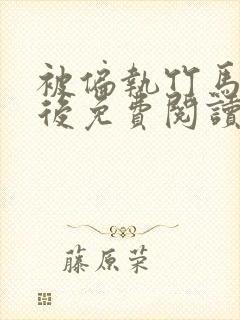 被偏執竹馬
後免費閱讀
藤原荣